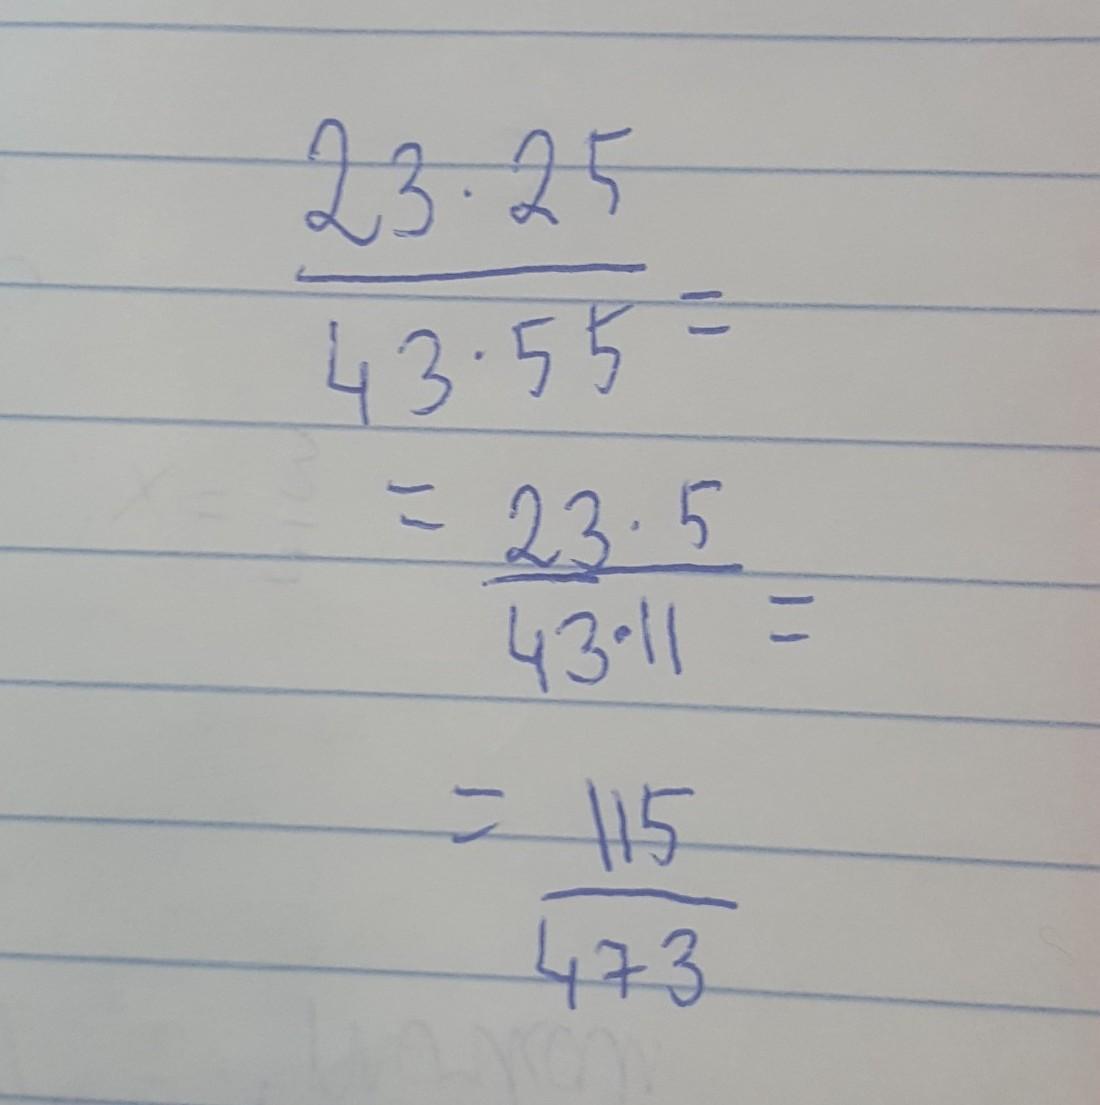 23·25
43·55 =
= 23·5
43·11 =
= 115
473